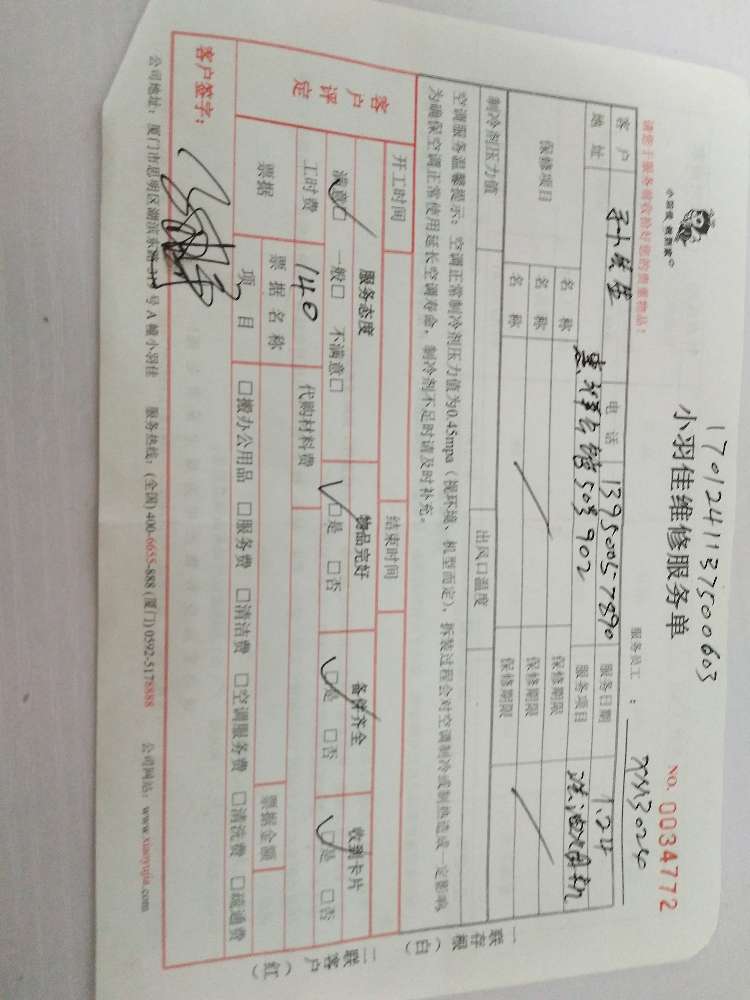 1701241137500603
小羽佳维修服务单
NO. 0034772
小羽佳 做到家
请您于服务前收拾好您的贵重物品!
服务员工:
客户
电话 13950057890
服务日期 1.24
地址
503 902
服务项目 洗油烟机
保修项目
名称
保修期限
名称
保修期限
名称
保修期限
制冷剂压力值
出风口温度
空调服务温馨提示:空调正常制冷剂压力值为0.45mpa(视环境、机型而定),拆装过程会对空调制冷或制热造成一定影响,
为确保空调正常使用延长空调寿命,制冷剂不足时请及时补充。
开工时间
结束时间
客户评定
服务态度
物品完好
备件齐全
收到卡片
满意□ 一般□ 不满意□
□是 □否
□是 □否
□是 □否
工时费 140
代购材料费
票据
票据名称
票据金额
项目
□搬办公用品 □服务费 □清洁费 □空调服务费 □清洗费 □疏通费
客户签字:
公司地址:厦门市思明区湖滨东路319号A幢小羽佳 服务热线:(全国)400-6655-888 (厦门) 0592-5178888 公司网站:www.xiaoyujia.com
一联存根(白)
二联客户(红)